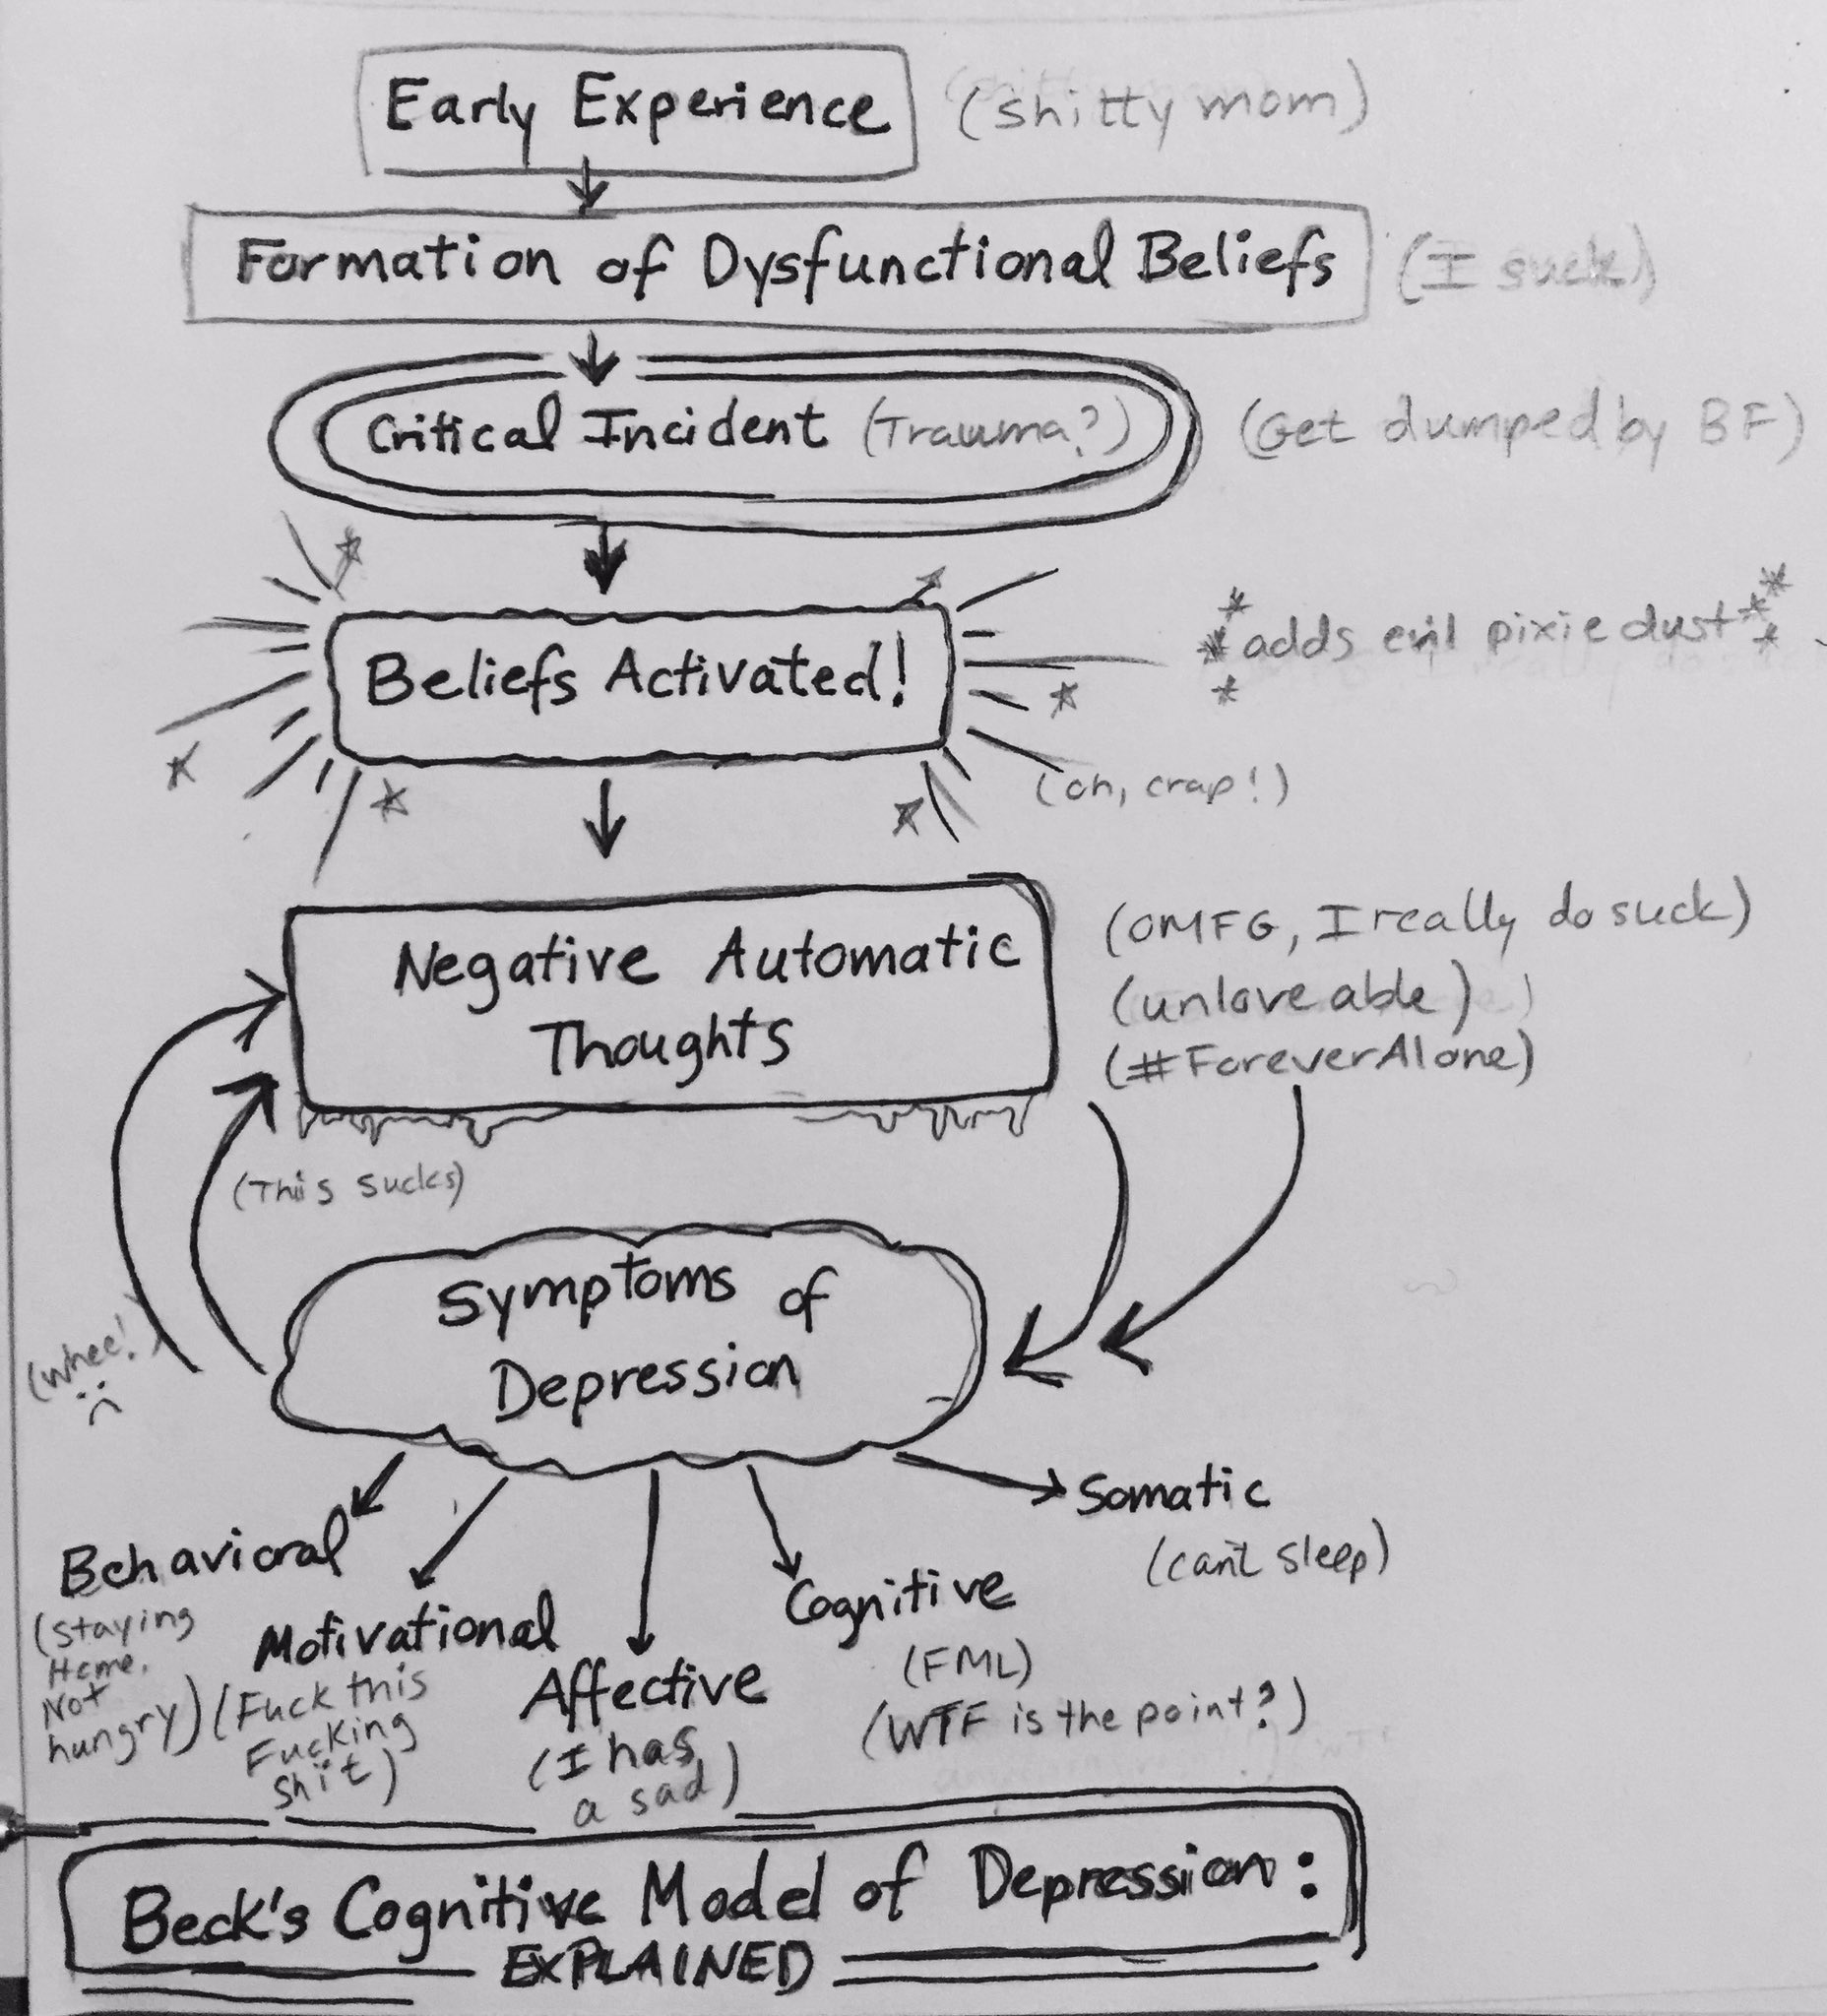 Early Experience (shitty mom)
Formation of Dysfunctional Beliefs (I suck)
Critical Incident (Trauma?) (Get dumped by BF)
*adds evil pixie dust*
Beliefs Activated!
(oh, crap!)
Negative Automatic
Thoughts
(OMFG, I really do suck)
(unloveable)
(#ForeverAlone)
(This sucks)
Symptoms of
Depression
(whee!)
:(
Somatic
(can't sleep)
Behavioral
(staying
Home.
Not
hungry)
Motivational
(Fuck this
Fucking
shit)
Affective
(I has
a sad)
Cognitive
(FML)
(WTF is the point?)
Beck's Cognitive Model of Depression:
EXPLAINED